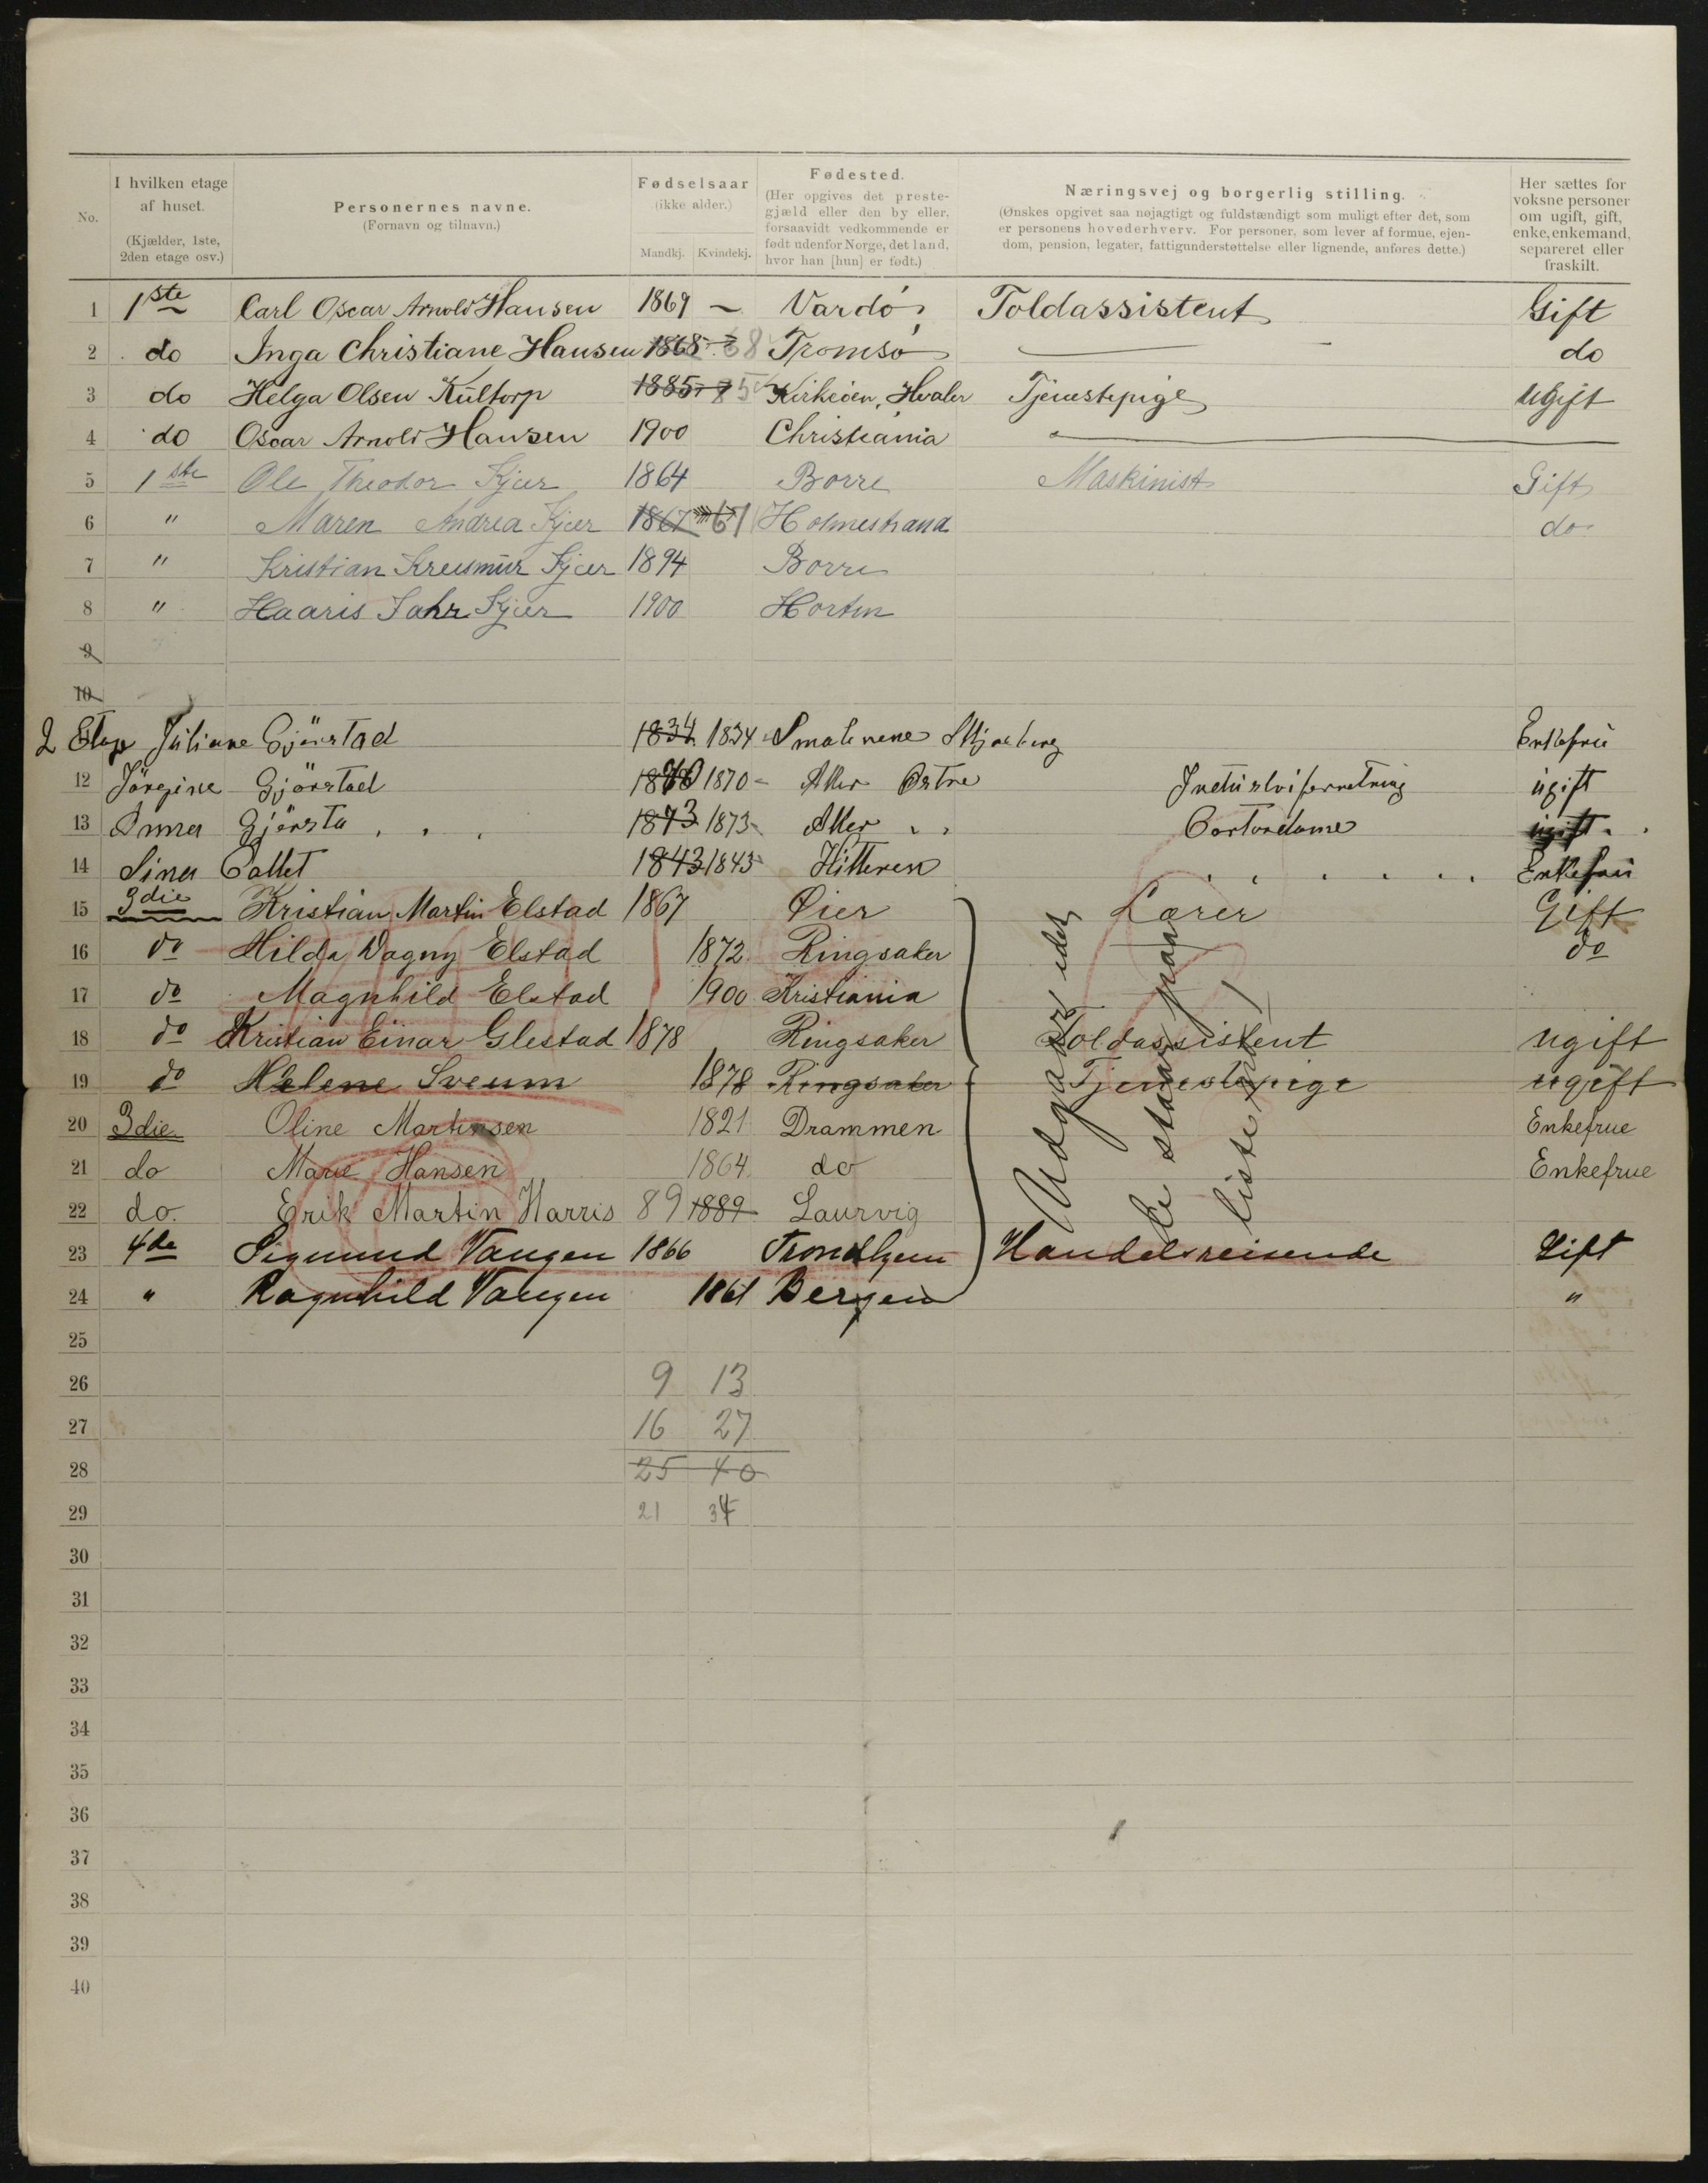 No. I hvilken etage af huset. (Kjælder, 1ste, 2den etage osv.) Personernes navne. (Fornavn og tilnavn.) Fødselsaar (ikke alder.) Mandkj. Kvindekj. Fødested. (Her opgives det prestegjæld eller den by eller, forsaavidt vedkommende er født udenfor Norge, det land, hvor han [hun] er født.) Næringsvej og borgerlig stilling. (Ønskes opgivet saa nøjagtigt og fuldstændigt som muligt efter det, som er personens hovederhverv. For personer, som lever af formue, ejendom, pension, legater, fattigunderstøttelse eller lignende, anføres dette.) Her sættes for voksne personer om ugift, gift, enke, enkemand, separeret eller fraskilt.
1 1ste Carl Oscar Arnold Hansen 1869 – Vardö Toldassistent Gift
2 do Inga Christiane Hansen 1868 68 Tromsö — do
3 do Helga Olsen Kultorp 1885 85 Kirkeöen, Hvaler Tjenestepige Ugift
4 do Oscar Arnold Hansen 1900 Christiania
5 1ste Ole Theodor Kjær 1864 Borre Maskinist Gift
6 " Maren Andrea Kjær 1867 67 Holmestrand do
7 " Kristian Kjær 1894 Borre
8 " Haaris Kjær 1900 Horten
9
10
2 Etage Juliane Gjörstad 1834 1834 Smalenene Skjæberg Enkefru
12 Jörgine Gjörstad 1870 1870 – Aker Östre ugift
13 Anna Gjörsta " " 1873 1873 – Aker " " Contordame ugift
14 Sina 1843 1843 Hitteren Enkefru
15 3die Kristian Martin Elstad 1867 Øier Lærer Gift
16 do Hilda Dagny Elstad 1872 Ringsaker do
17 do Magnhild Elstad 1900 Kristiania
18 do Kristian Einar Glestad 1878 Ringsaker Toldassistent ugift
19 do Helene Sveum 1878 Ringsaker Tjenestepige ugift
20 3die Oline Martinsen 1821 Drammen Enkefrue
21 do Marie Hansen 1864 do Enkefrue
22 do. Erik Martin Harris 89 1889 Laurvig
23 4de Sigmund Vangen 1866 Trondhjem Handelsreisende Gift
24 " Ragnhild Vangen 1861 Bergen "
Udgaar, idet
de staar paa
liste
25
26 9 13
27 16 27
28 25 40
29 21 34
30
31
32
33
34
35
36
37
38
39
40